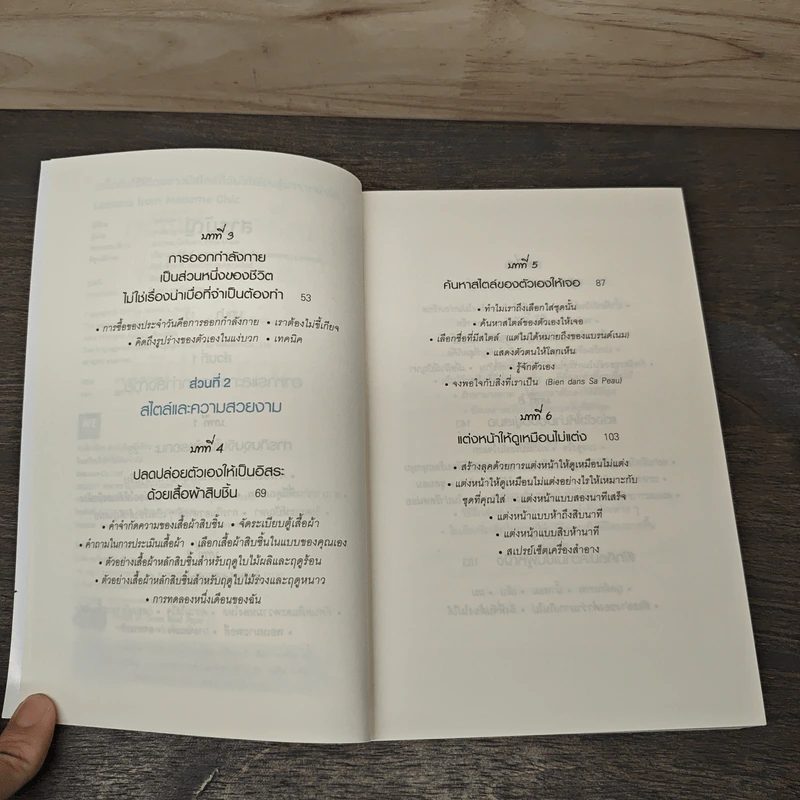 บทที่ 3
การออกกำลังกาย
เป็นส่วนหนึ่งของชีวิต
ไม่ใช่เรื่องน่าเบื่อที่จำเป็นต้องทำ 53
• การซื้อของประจำวันคือการออกกำลังกาย • เราต้องไม่ขี้เกียจ
• คิดถึงรูปร่างของตัวเองในแง่บวก • เทคนิค
ส่วนที่ 2
สไตล์และความสวยงาม
บทที่ 4
ปลดปล่อยตัวเองให้เป็นอิสระ
ด้วยเสื้อผ้าสิบชิ้น 69
• คำจำกัดความของเสื้อผ้าสิบชิ้น • จัดระเบียบตู้เสื้อผ้า
• คำถามในการประเมินเสื้อผ้า • เลือกเสื้อผ้าสิบชิ้นในแบบของคุณเอง
• ตัวอย่างเสื้อผ้าหลักสิบชิ้นสำหรับฤดูใบไม้ผลิและฤดูร้อน
• ตัวอย่างเสื้อผ้าหลักสิบชิ้นสำหรับฤดูใบไม้ร่วงและฤดูหนาว
• การทดลองหนึ่งเดือนของฉัน
บทที่ 5
ค้นหาสไตล์ของตัวเองให้เจอ 87
• ทำไมเราถึงเลือกใส่ชุดนั้น
• ค้นหาสไตล์ของตัวเองให้เจอ
• เลือกชื่อที่มีสไตล์ (แต่ไม่ได้หมายถึงของแบรนด์เนม)
• แสดงตัวตนให้โลกเห็น
• รู้จักตัวเอง
• จงพอใจกับสิ่งที่เราเป็น (Bien dans Sa Peau)
บทที่ 6
แต่งหน้าให้ดูเหมือนไม่แต่ง 103
• สร้างลุคด้วยการแต่งหน้าให้ดูเหมือนไม่แต่ง
• แต่งหน้าให้ดูเหมือนไม่แต่งอย่างไรให้เหมาะกับ
ชุดที่คุณใส่ • แต่งหน้าแบบสองนาทีเสร็จ
• แต่งหน้าแบบห้าถึงสิบนาที
• แต่งหน้าแบบสิบห้านาที
• สเปรย์เซ็ตเครื่องสำอาง